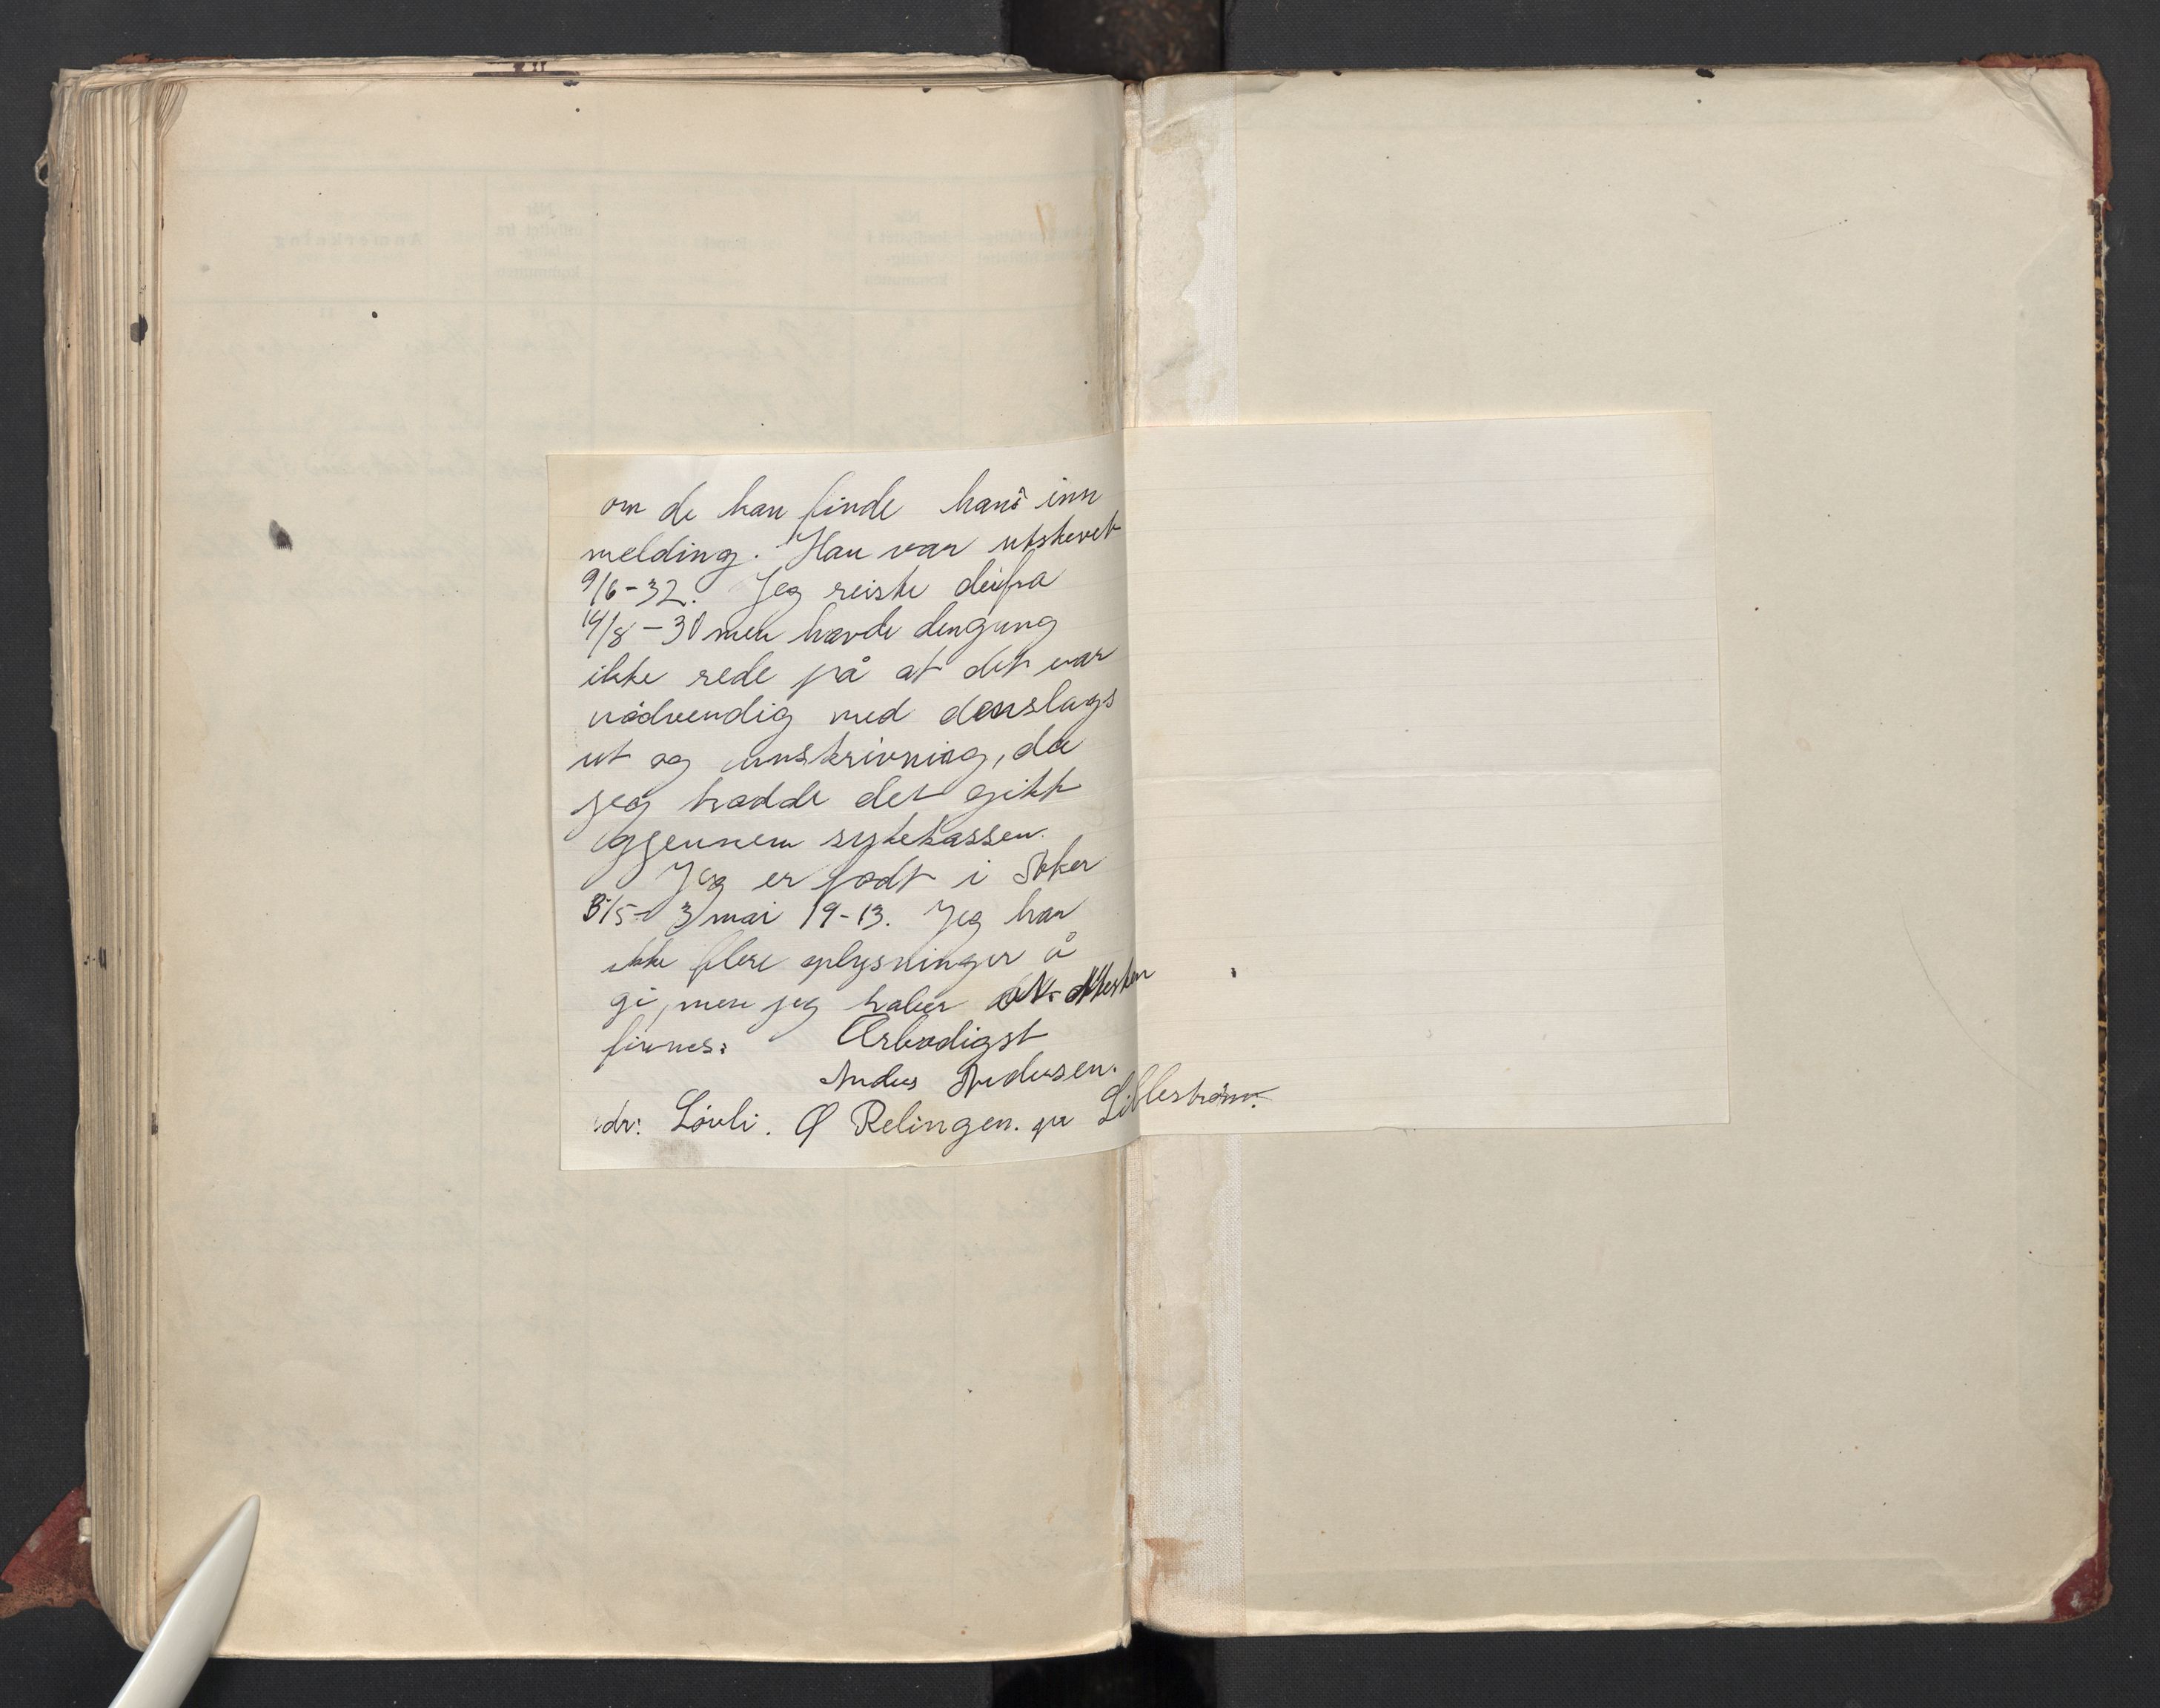 om de kan finde hans inn
melding. Han var utskrevet
9/6-32. Jeg reiste deifra
14/8-30 men havde dengang
ikke rede på at det var
nødvendig med denslags
ut og innskrivning, da
jeg trodde det gikk
gjennem sykekassen.
Jeg er født i Aker
3/5- 3 mai 19-13. Jeg har
ikke flere oplysninger å
gi, men jeg håber at attesten
finnes. Ærbødigst
Anders Andersen.
Adr: Løvli. Ø Relingen. pr Lillestrøm.